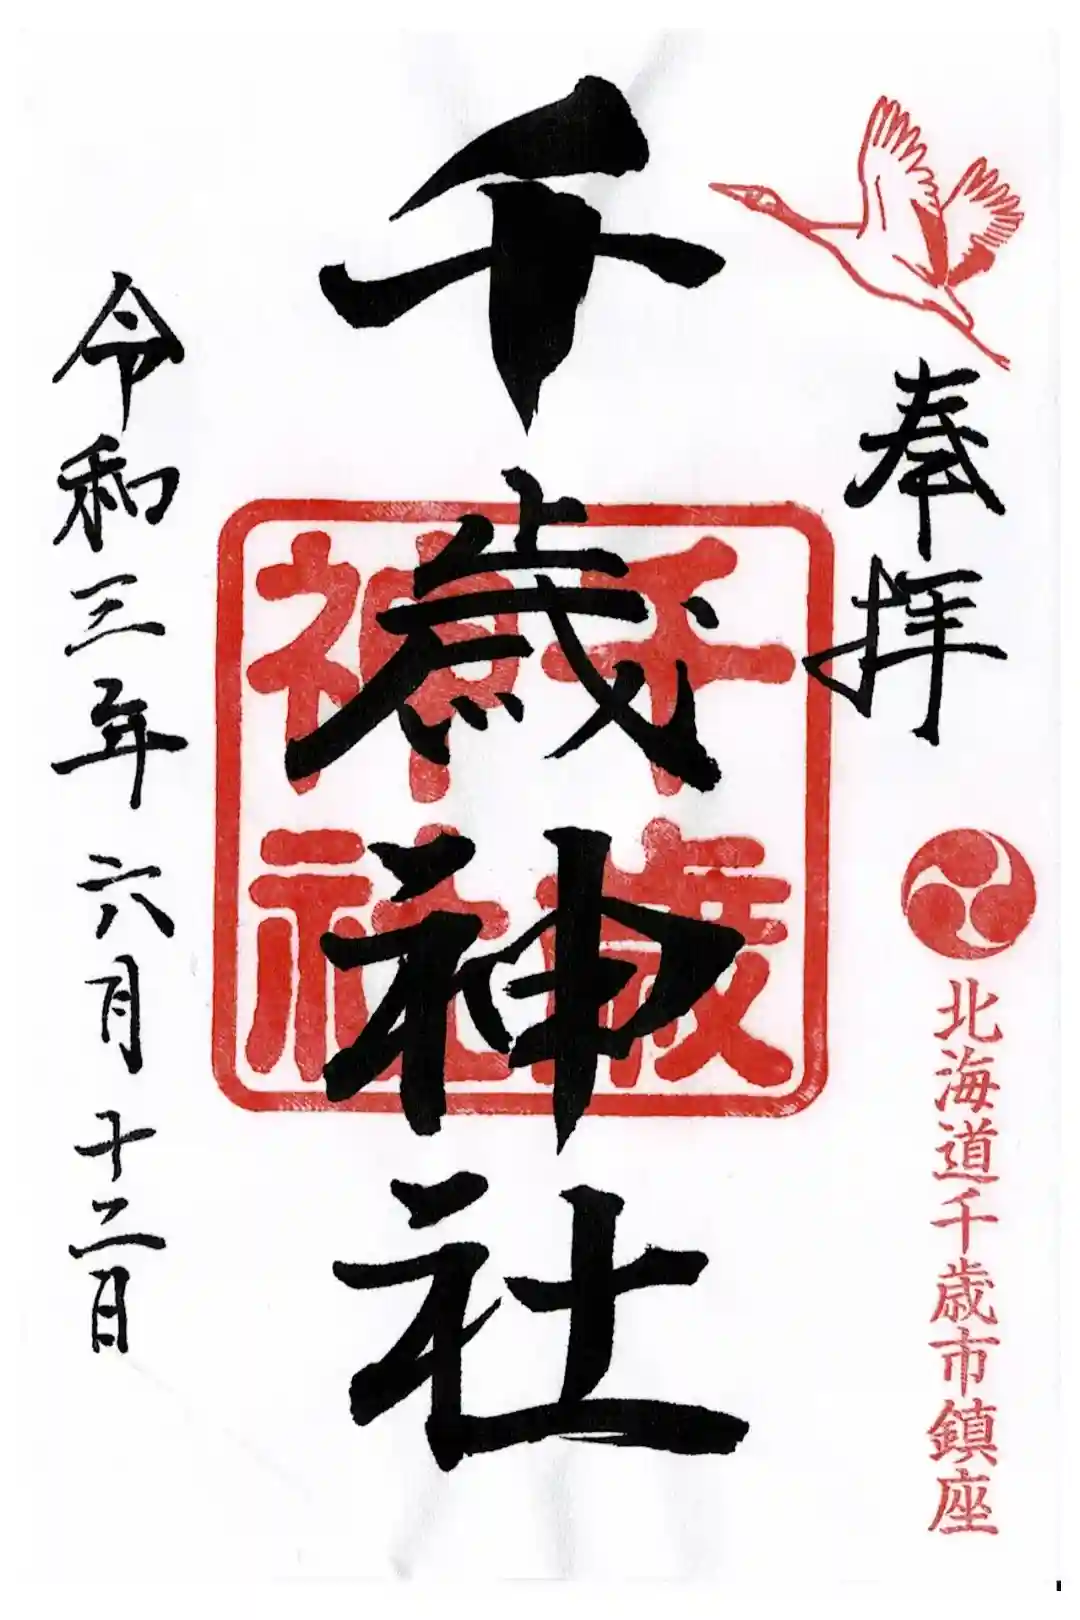 奉拝
北海道千歳市鎮座
千歳神社
千歳
神社
令和三年六月十二日